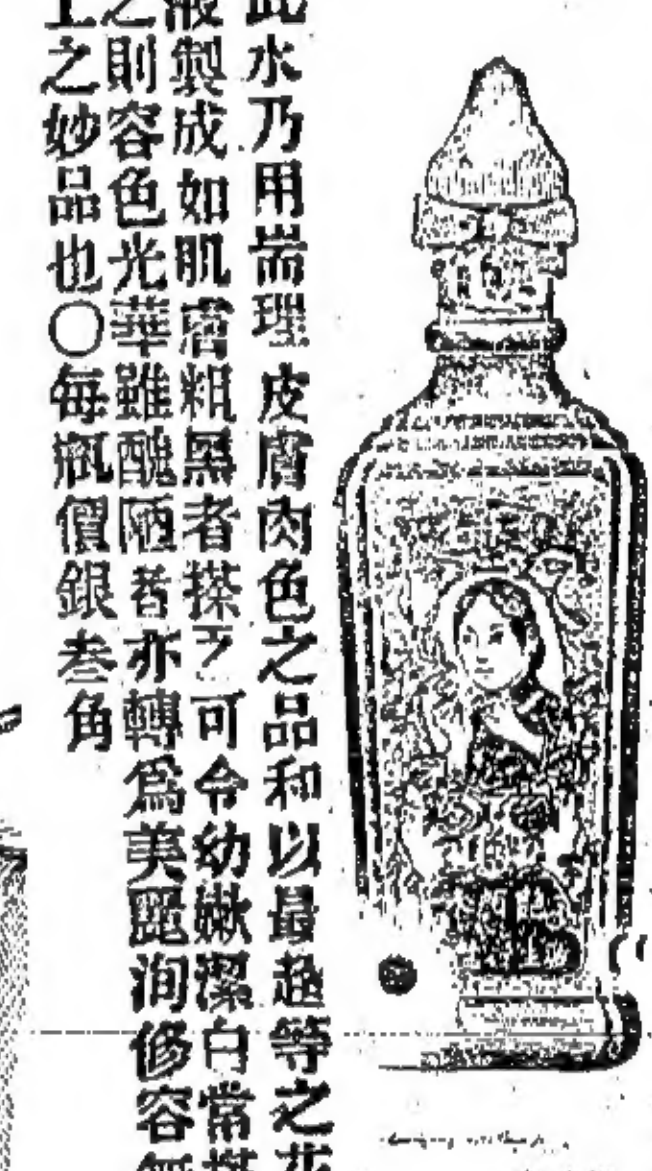 此水乃用耑理皮膚肉色之品和以最超等之花
液製成如肌膚粗黑者搽之可令幼嫩潔白常搽
之則容色光華雖醜陋者亦轉爲美麗洵修容無
上之妙品也○每瓶價銀叁角